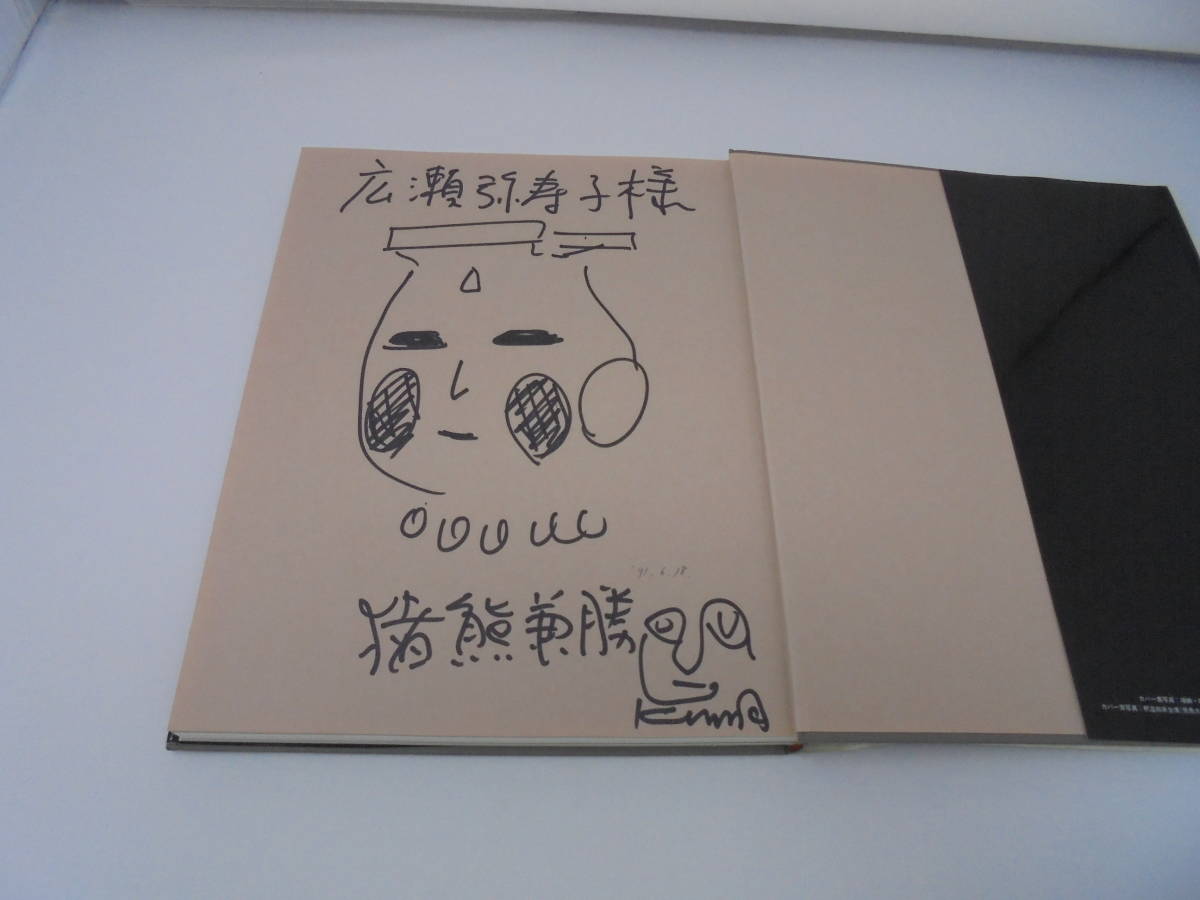 広瀬弥寿子様
'91.6.18.
猪熊兼勝
Kuma
カバー表写真:埴輪・
カバー裏写真: